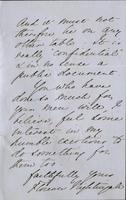 And it must not
therefore lie on any
other table. It is
really "confidential"
& in no sense a
public document
You who have
done so much for
your men will, I
believe, feel some
interest in my
humble exertions to
do something for
them too
faithfully yours
Florence Nightingale